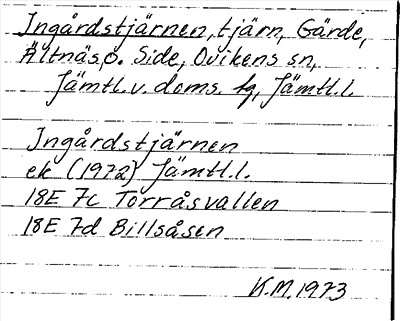 Ingårdstjärnen, tjärn, Gärde,
Ältnäs,o. Side, Ovikens sn,
Jämtl.v. doms. fg, Jämtl.l.
Ingårdstjärnen
ek (1972) Jämtl.l.
18E 7c Torråsvallen
18E 7d Billsåsen
K.M.1973